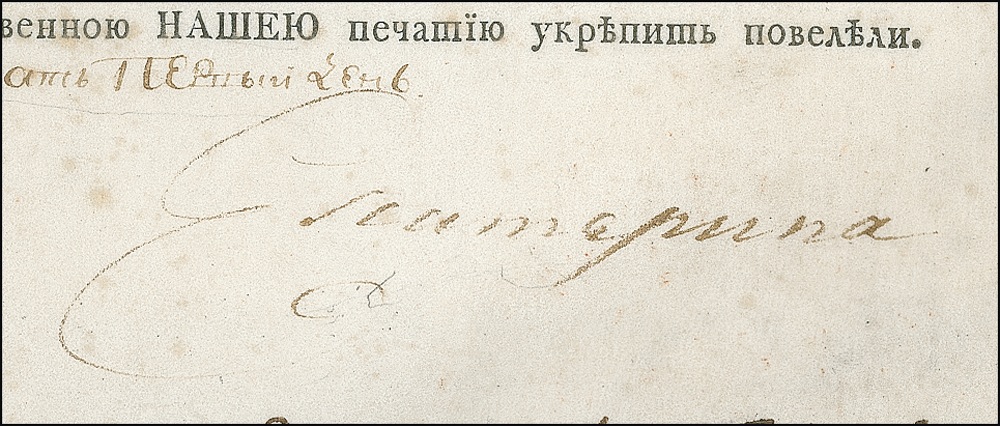 венною НАШЕЮ печатїю укрѣпить повелѣли.
ать ПЕрвый день
Екатерина